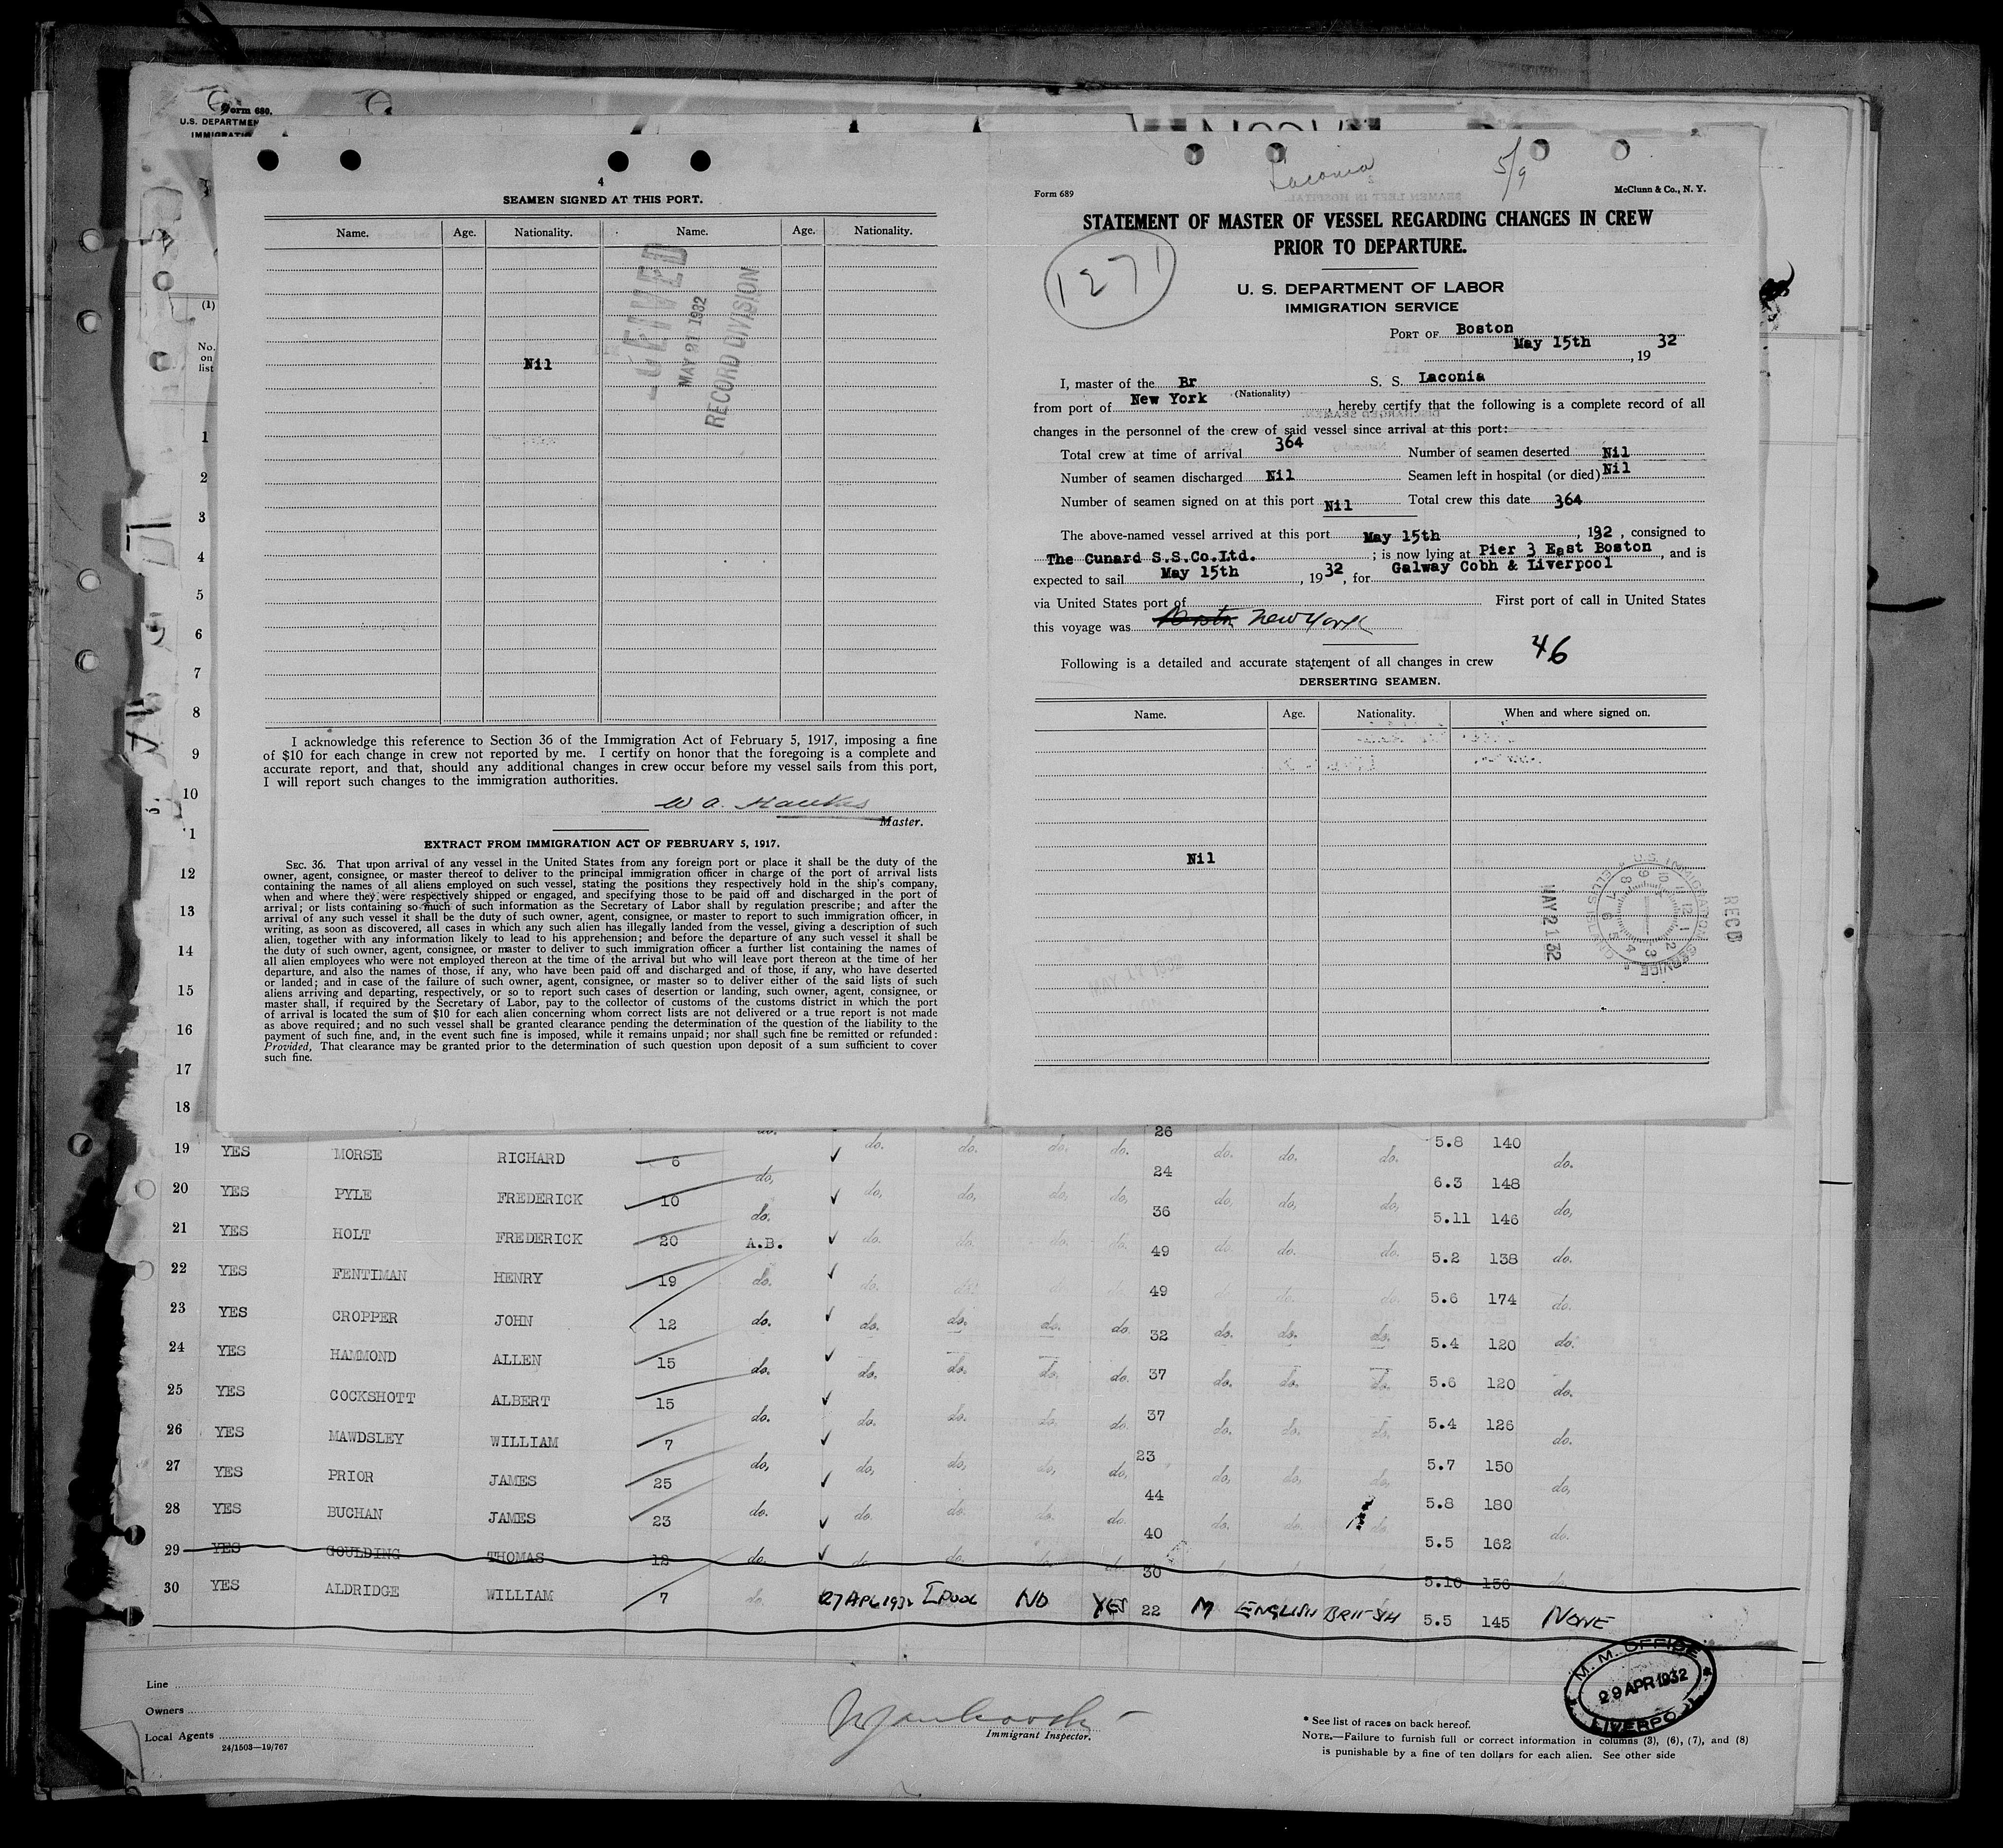 Form 680.
U.S. DEPARTMEN
IMMIGRATI
(1)
No.
on
list
4
SEAMEN SIGNED AT THIS PORT.
Name. Age. Nationality. Name. Age. Nationality.
Nil
MAY 21 1932
RECORD DIVISION
I acknowledge this reference to Section 36 of the Immigration Act of February 5, 1917, imposing a fine
of $10 for each change in crew not reported by me. I certify on honor that the foregoing is a complete and
accurate report, and that, should any additional changes in crew occur before my vessel sails from this port,
I will report such changes to the immigration authorities.
W A. Hawkes
Master.
EXTRACT FROM IMMIGRATION ACT OF FEBRUARY 5, 1917.
SEC. 36. That upon arrival of any vessel in the United States from any foreign port or place it shall be the duty of the
owner, agent, consignee, or master thereof to deliver to the principal immigration officer in charge of the port of arrival lists
containing the names of all aliens employed on such vessel, stating the positions they respectively hold in the ship's company,
when and where they were respectively shipped or engaged, and specifying those to be paid off and discharged in the port of
arrival; or lists containing so much of such information as the Secretary of Labor shall by regulation prescribe; and after the
arrival of any such vessel it shall be the duty of such owner, agent, consignee, or master to report to such immigration officer, in
writing, as soon as discovered, all cases in which any such alien has illegally landed from the vessel, giving a description of such
alien, together with any information likely to lead to his apprehension; and before the departure of any such vessel it shall be
the duty of such owner, agent, consignee, or master to deliver to such immigration officer a further list containing the names of
all alien employees who were not employed thereon at the time of the arrival but who will leave port thereon at the time of her
departure, and also the names of those, if any, who have been paid off and discharged and of those, if any, who have deserted
or landed; and in case of the failure of such owner, agent, consignee, or master so to deliver either of the said lists of such
aliens arriving and departing, respectively, or so to report such cases of desertion or landing, such owner, agent, consignee, or
master shall, if required by the Secretary of Labor, pay to the collector of customs of the customs district in which the port
of arrival is located the sum of $10 for each alien concerning whom correct lists are not delivered or a true report is not made
as above required; and no such vessel shall be granted clearance pending the determination of the question of the liability to the
payment of such fine, and, in the event such fine is imposed, while it remains unpaid; nor shall such fine be remitted or refunded:
Provided, That clearance may be granted prior to the determination of such question upon deposit of a sum sufficient to cover
such fine.
Laconia 5/9
Form 689 McClunn & Co., N. Y.
STATEMENT OF MASTER OF VESSEL REGARDING CHANGES IN CREW
PRIOR TO DEPARTURE.
1271
U. S. DEPARTMENT OF LABOR
IMMIGRATION SERVICE
PORT OF Boston
May 15th, 19 32
I, master of the Br S. S. Laconia
(Nationality)
from port of New York, hereby certify that the following is a complete record of all
changes in the personnel of the crew of said vessel since arrival at this port:
Total crew at time of arrival 364 Number of seamen deserted Nil
Number of seamen discharged Nil Seamen left in hospital (or died) Nil
Number of seamen signed on at this port Nil Total crew this date 364
The above-named vessel arrived at this port May 15th, 1932, consigned to
The Cunard S.S.Co.Ltd.; is now lying at Pier 3 East Boston, and is
expected to sail May 15th, 1932, for Galway Cobh & Liverpool
via United States port of First port of call in United States
this voyage was Boston New York
46
Following is a detailed and accurate statement of all changes in crew
DERSERTING SEAMEN.
Name. Age. Nationality. When and where signed on.
Nil
MAY 17 1932
U.S. IMMIGRATION SERVICE
MAY 21 32
RECD
1
2
3
4
5
6
7
8
9
10
1
12
13
14
15
16
17
18
26
19 YES MORSE RICHARD 6 do. do. do. do. do. 24 do. do. do. 5.8 140 do.
20 YES PYLE FREDERICK 10 do. do. do. do. do. 36 do. do. do. 6.3 148 do.
21 YES HOLT FREDERICK 20 A.B. do. do. do. do. 49 do. do. do. 5.11 146 do.
22 YES FENTIMAN HENRY 19 do. do. do. do. do. 49 do. do. do. 5.2 138 do.
23 YES CROPPER JOHN 12 do. do. do. do. do. 32 do. do. do. 5.6 174 do.
24 YES HAMMOND ALLEN 15 do. do. do. do. do. 37 do. do. do. 5.4 120 do.
25 YES COCKSHOTT ALBERT 15 do. do. do. do. do. 37 do. do. do. 5.6 120 do.
26 YES MAWDSLEY WILLIAM 7 do. do. do. do. do. 23 do. do. do. 5.4 126 do.
27 YES PRIOR JAMES 25 do. do. do. do. do. 44 do. do. do. 5.7 150 do.
28 YES BUCHAN JAMES 23 do. do. do. do. do. 40 do. do. do. 5.8 180 do.
5.5 162
29 YES GOULDING THOMAS 12 do. do. do. do. do. 30 5.10 156 do.
30 YES ALDRIDGE WILLIAM 7 do. 27 APL 1932 LPOOL NO YES 22 M ENGLISH BRITISH 5.5 145 NONE
M. M. OFFICE
29 APR 1932
LIVERPO
Line
Owners
Local Agents
24/1503—19/767
Immigrant Inspector.
* See list of races on back hereof.
NOTE.—Failure to furnish full or correct information in columns (3), (6), (7), and (8)
is punishable by a fine of ten dollars for each alien. See other side